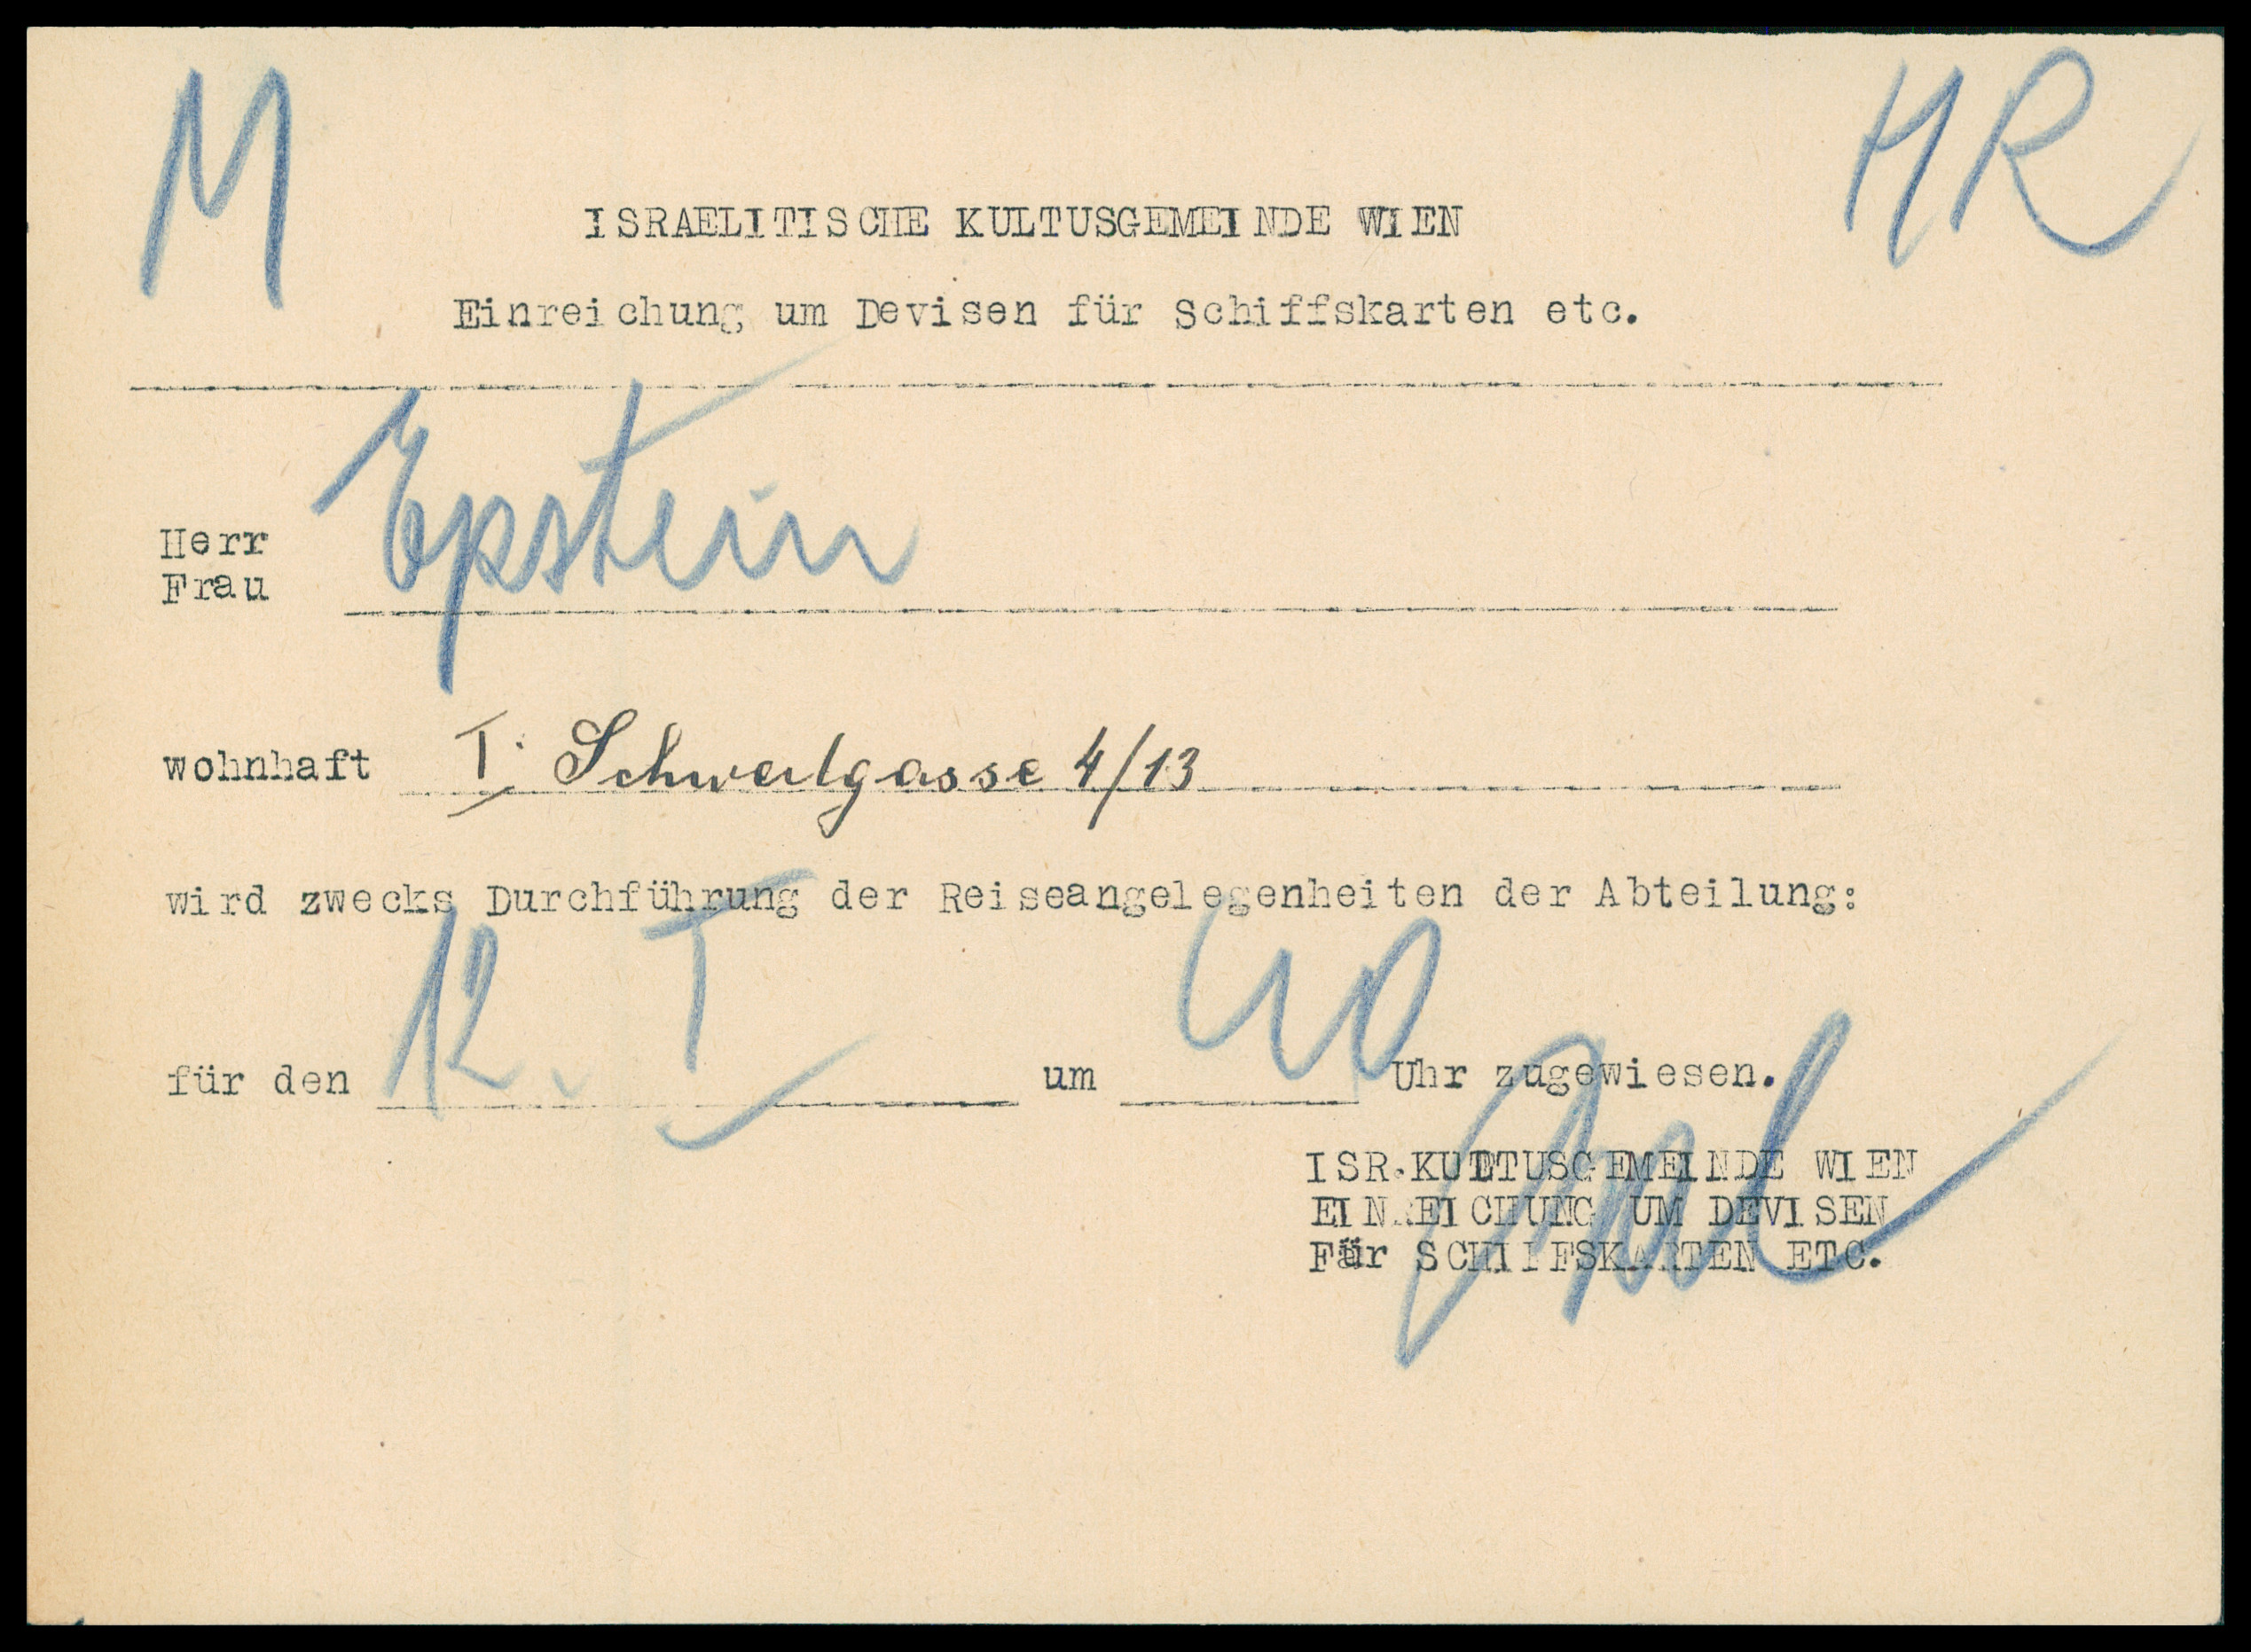 M
HR
ISRAELITISCHE KULTUSGEMEINDE WIEN
Einreichung um Devisen für Schiffskarten etc.
Epstein
Herr
Frau
wohnhaft I. Schwertgasse 4/13
wird zwecks Durchführung der Reiseangelegenheiten der Abteilung:
für den 12. I um Uhr zugewiesen.
ISR.KULTUSGEMEINDE WIEN
EINREICHUNG UM DEVISEN
Für SCHIFFSKARTEN ETC.